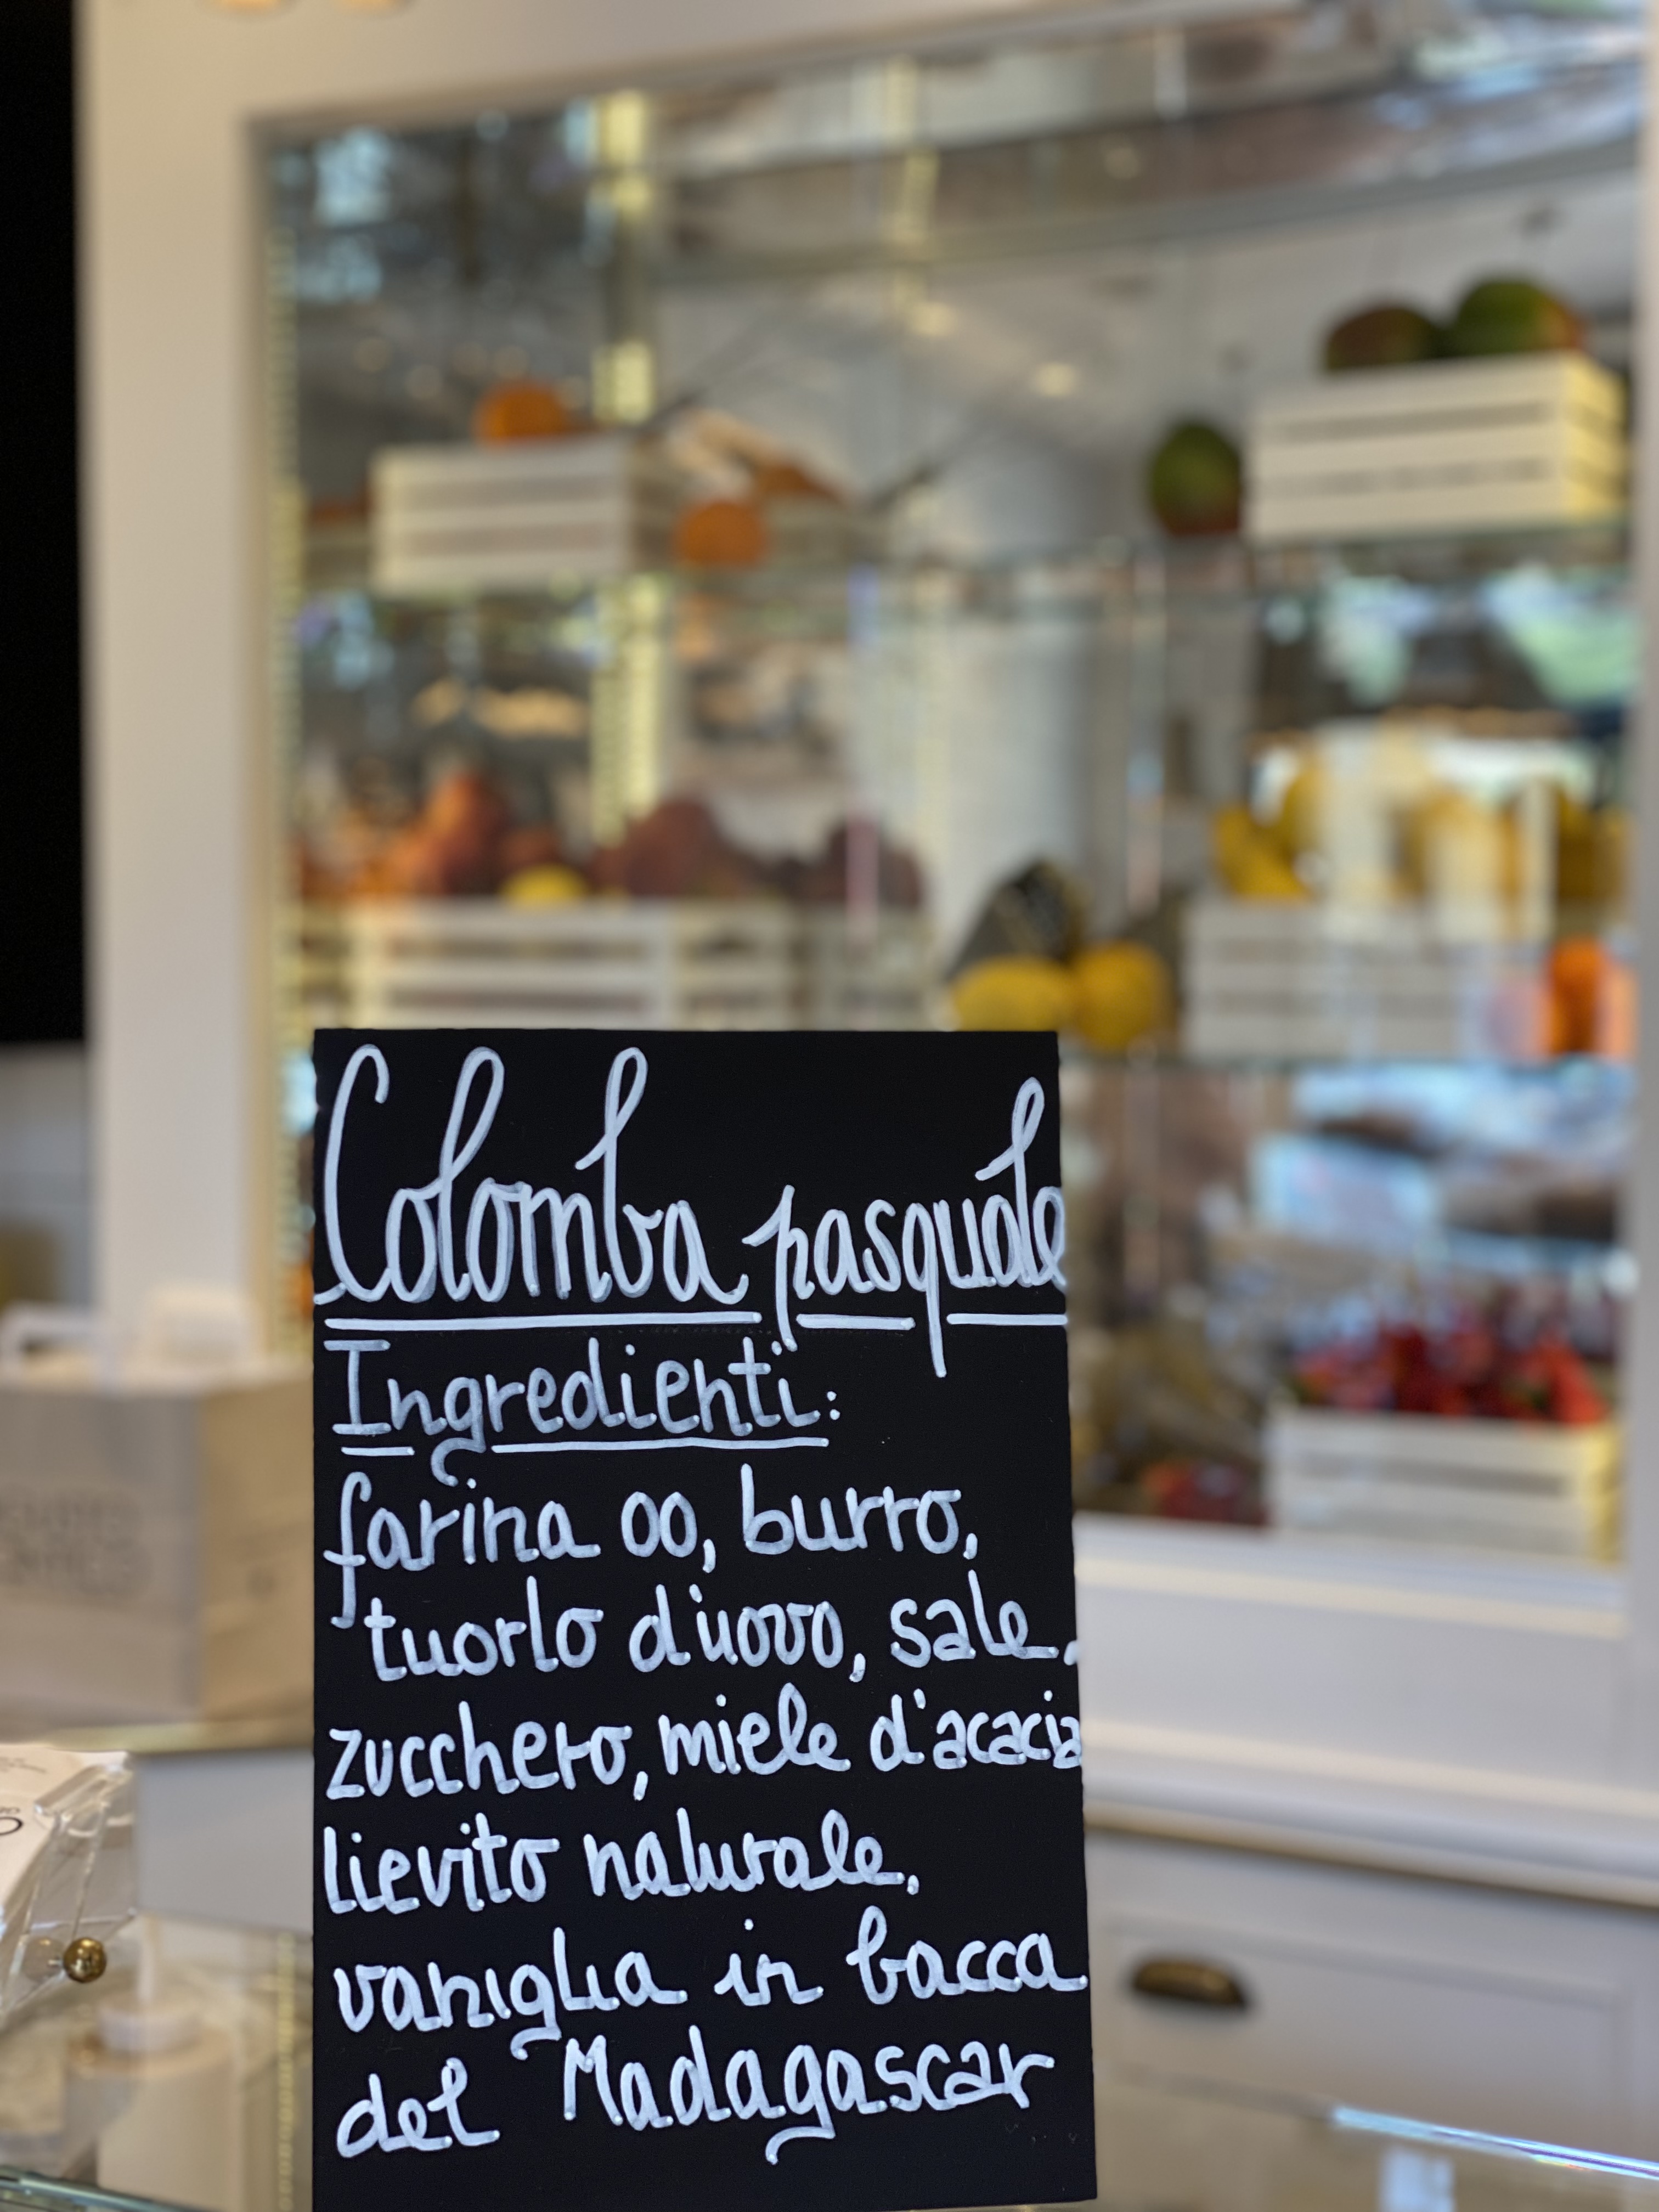 Colomba pasquale
Ingredienti:
farina 00, burro,
tuorlo d'uovo, sale,
zucchero, miele d'acacia
lievito naturale,
vaniglia in bacca
del Madagascar